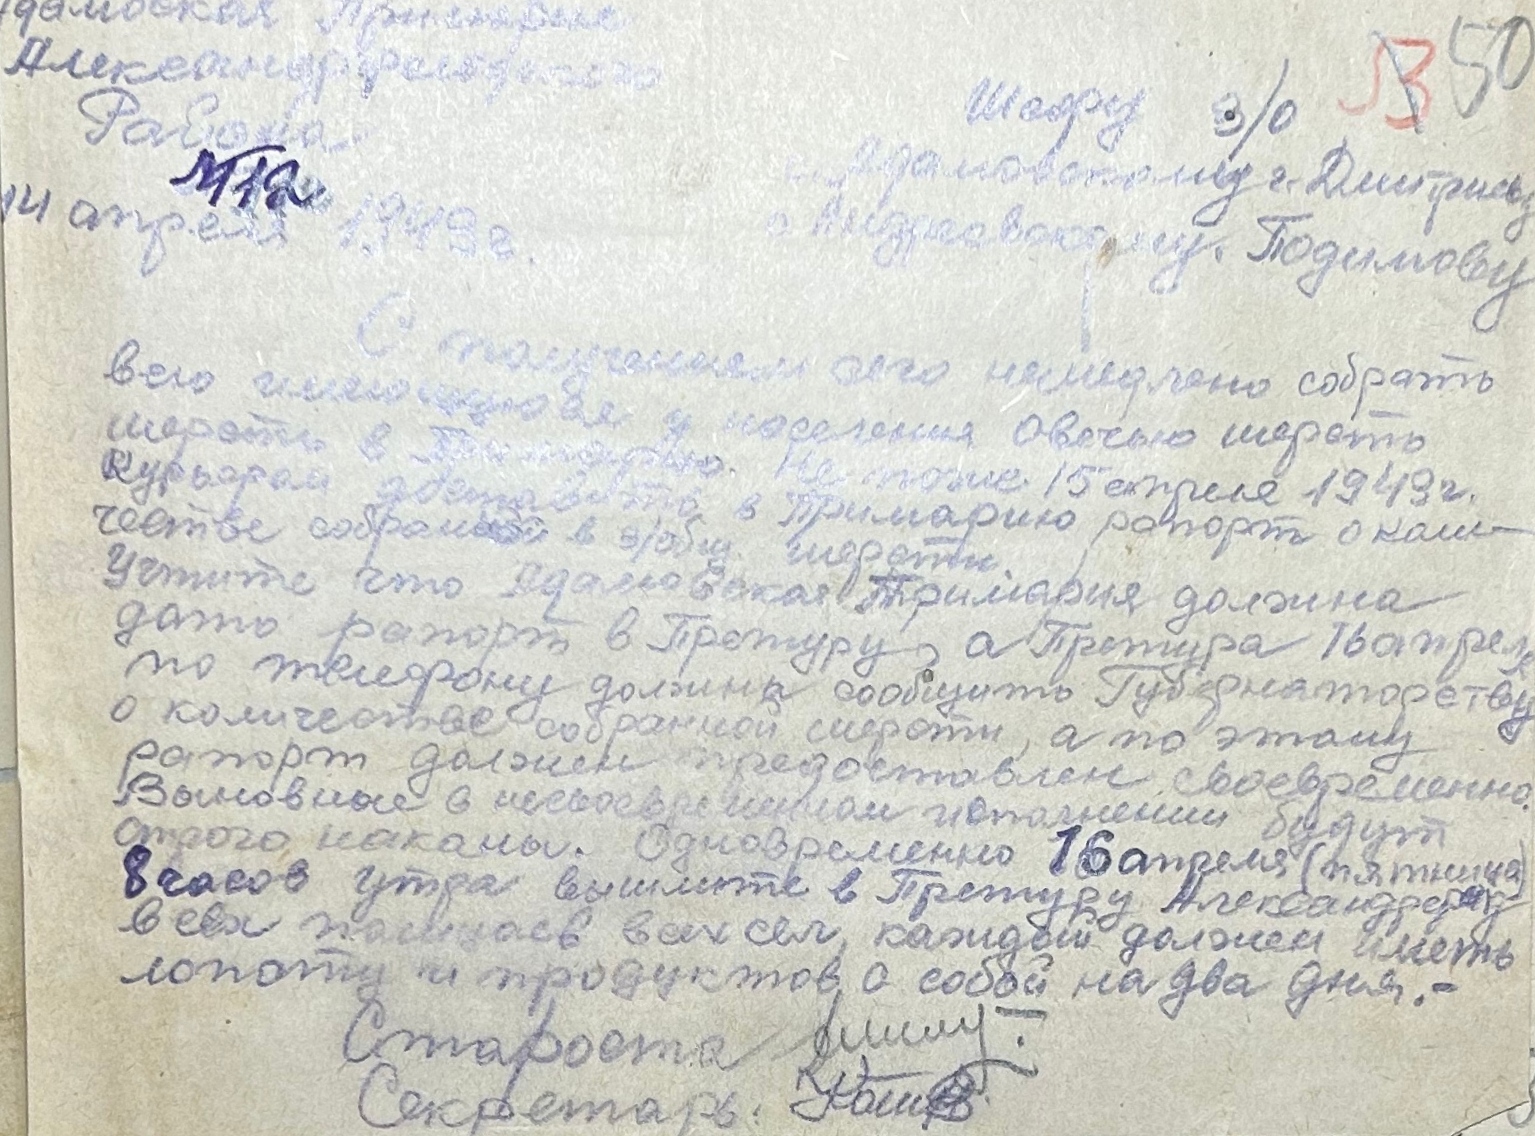 Адамовская Примария
Александрфельдского
Района
№12
14 апреля 1943г.
Шефу з/о
Адамовскому г. Дмитриеву
с. Андреевскому. Подимову
В 50
С получением сего немедлено собрать
всю имеющуюся у населения Овечью шерсть
шерсть в Примарию. Не позже 15 апреля 1943г.
Курьером доставить в Примарию рапорт о коли-
честве собранной в з/общ. шерсти.
Учтите что Адамовская Примария должна
дать рапорт в Претуру, а Претура 16 апреля
по телефону должна сообщить Губернаторству
о количестве собранной шерсти, а по этому
рапорт должен предоставлен своевременно.
Выновные в несвоевременном исполнении будут
строго наканы. Одновременно 16 апреля (пятница)
8 часов утра вышлите в Претуру Александрфельд
всех полицаев всех сел, каждый должен иметь
лопату и продуктов с собой на два дня.-
Староста
Секретарь.